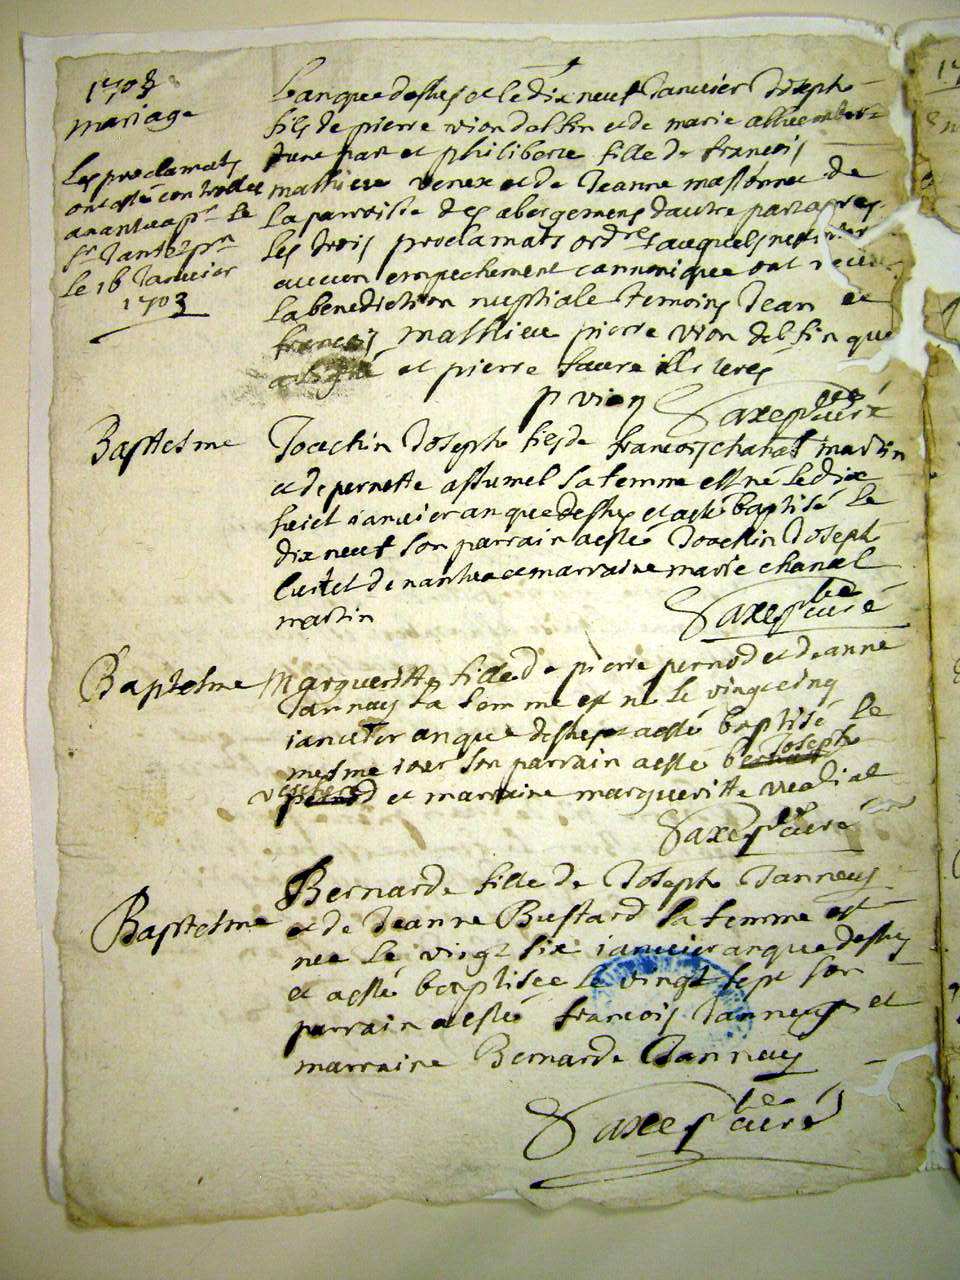 1703
mariage
Les proclamats
ont esté controlles
a nantua par le
Sr Jantet
le 16 Janvier
1703
Lan que dessus et le dix neuf Janvier Joseph
fils de pierre vion delfin et de marie
dune part et philiberte fille de francois
mathieu et de Jeanne massonnet de
la parroisse des abergemens dautre part apres
les trois proclamats
aucun empechement cannonique ont receu
la benediction nuptiale temoins Jean et
francois mathieu pierre vion delfin qui
a signé et pierre faure illiterés
p vion
curé
Baptesme
Joachin Joseph fils de francois chanal martin
et de pernette assumel sa femme est né le dix
huict ianvier an que dessus et a esté baptisé le
dix neuf son parrain a esté Joachin Joseph
de nantua et marraine marie chanal
martin
curé
Baptesme
Margueritte fille de pierre pernod et Jeanne
Jannay sa femme est né le vingt cinq
ianvier an que dessus et a esté baptisé le
mesme iour son parrain a esté Joseph
et marraine margueritte
curé
Baptesme
Bernarde fille de Joseph Janneuy
et de Jeanne Bustard sa femme est
nee le vingt six ianvier an que dessus
et a esté baptisee le vingt sept son
parrain a esté francois Janneuy et
marraine Bernarde Jannay
curé